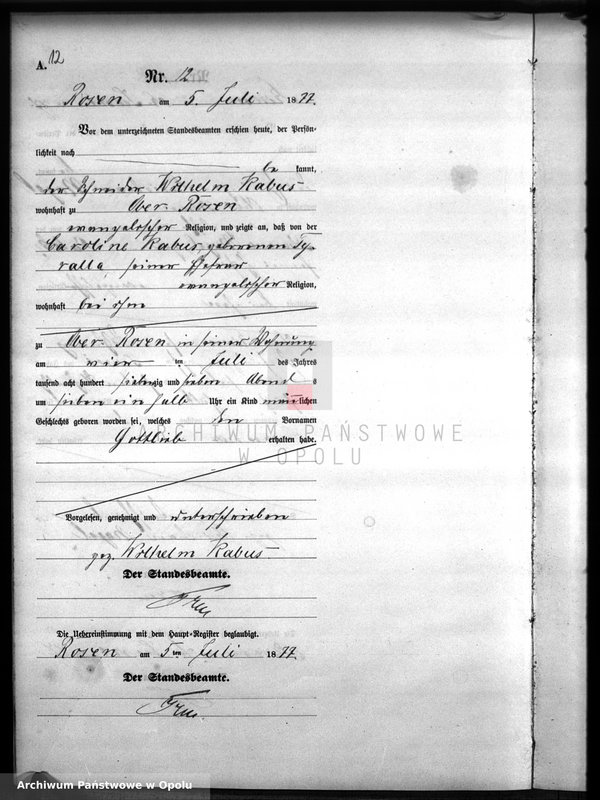 A. 12
Nr. 12
Rosen am 5. Juli 1877.
Vor dem unterzeichneten Standesbeamten erschien heute, der Persön-
lichkeit nach
be kannt,
der Schneider Wilhelm Kabus
wohnhaft zu Ober Rosen
evangelischer Religion, und zeigte an, daß von der
Caroline Kabus, geborenen
seiner Ehefrau
evangelischer Religion,
wohnhaft bei ihm
zu Ober Rosen in seiner Wohnung
am vier ten Juli des Jahres
tausend acht hundert siebenzig und sieben Abend s
um sieben ein halb Uhr ein Kind männlichen
Geschlechts geboren worden sei, welches den Vornamen
Gottlieb erhalten habe.
Vorgelesen, genehmigt und unterschrieben
gez. Wilhelm Kabus
Der Standesbeamte.
Die Uebereinstimmung mit dem Haupt-Register beglaubigt.
Rosen am 5ten Juli 1877.
Der Standesbeamte.
ARCHIWUM PAŃSTWOWE
W OPOLU
Archiwum Państwowe w Opolu